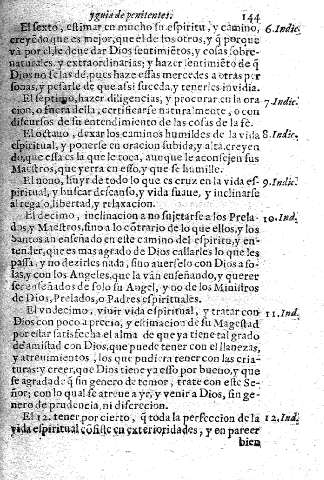 y guia de penitentes. 144
El sexto, estimar en mucho su espiritu, y camino, 6. Indic.
creyẽdo que es mejor, que el de los otros, y q̃ porque
va por el, le deve dar Dios sentimiẽtos, y cosas sobre-
naturales, y extraordinarias; y hazer sentimiẽto de q̃
Dios no se las dé, pues haze essas mercedes a otras per
sonas, y pesarle de que assi suceda, y tenerles invidia.
El septimo, hazer diligencias, y procurar en la ora 7. Indic.
cion, o fuera della, certificarse naturalmente, o con
discursos de su entendimiento de las cosas de la fé.
El octavo, dexar los caminos humildes de la vida 8. Indic.
espiritual, y ponerse en oracion subida, y alta, creyen
do, que essa es la que le toca, aunque le aconsejen sus
Maestros, que yerra en esso, y que se humille.
El nono, huyr de todo lo que es cruz en la vida es- 9. Indic.
piritual, y buscar descanso, y vida suave, y inclinarse
al regalo, libertad, y relaxacion.
El decimo, inclinacion a no sujetarse a los Prela- 10. Ind.
dos, y Maestros, sino a lo cõtrario de lo que ellos, y los
Santos an enseñado en este camino del espiritu, y en-
tender, que es mas agrado de Dios callarles lo que les
passa, y no dezirles nada, sino averselo con Dios a so-
las, y con los Angeles, que la van enseñando, y querer
ser enseñados de solo su Angel, y no de los Ministros
de Dios, Prelados, o Padres espirituales.
El vndecimo, vivir vida espiritual, y tratar con 11. Ind.
Dios con poco aprecio, y estimacion de su Magestad
por estar satisfecha el alma de que ya tiene tal grado
de amistad con Dios, que puede tener con el llanezas,
y atrevimientos, los que pudiera tener con las cria-
turas: y creer, que Dios tiene ya esso por bueno, y que
se agrada de q̃ sin genero de temor, trate con este Se-
ñor; con lo qual se atreve a yr, y venir a Dios, sin ge-
nero de prudencia, ni discrecion.
El 12. tener por cierto, q̃ toda la perfeccion de la 12. Ind.
vida espiritual cõsiste en exterioridades, y en parecer
bien